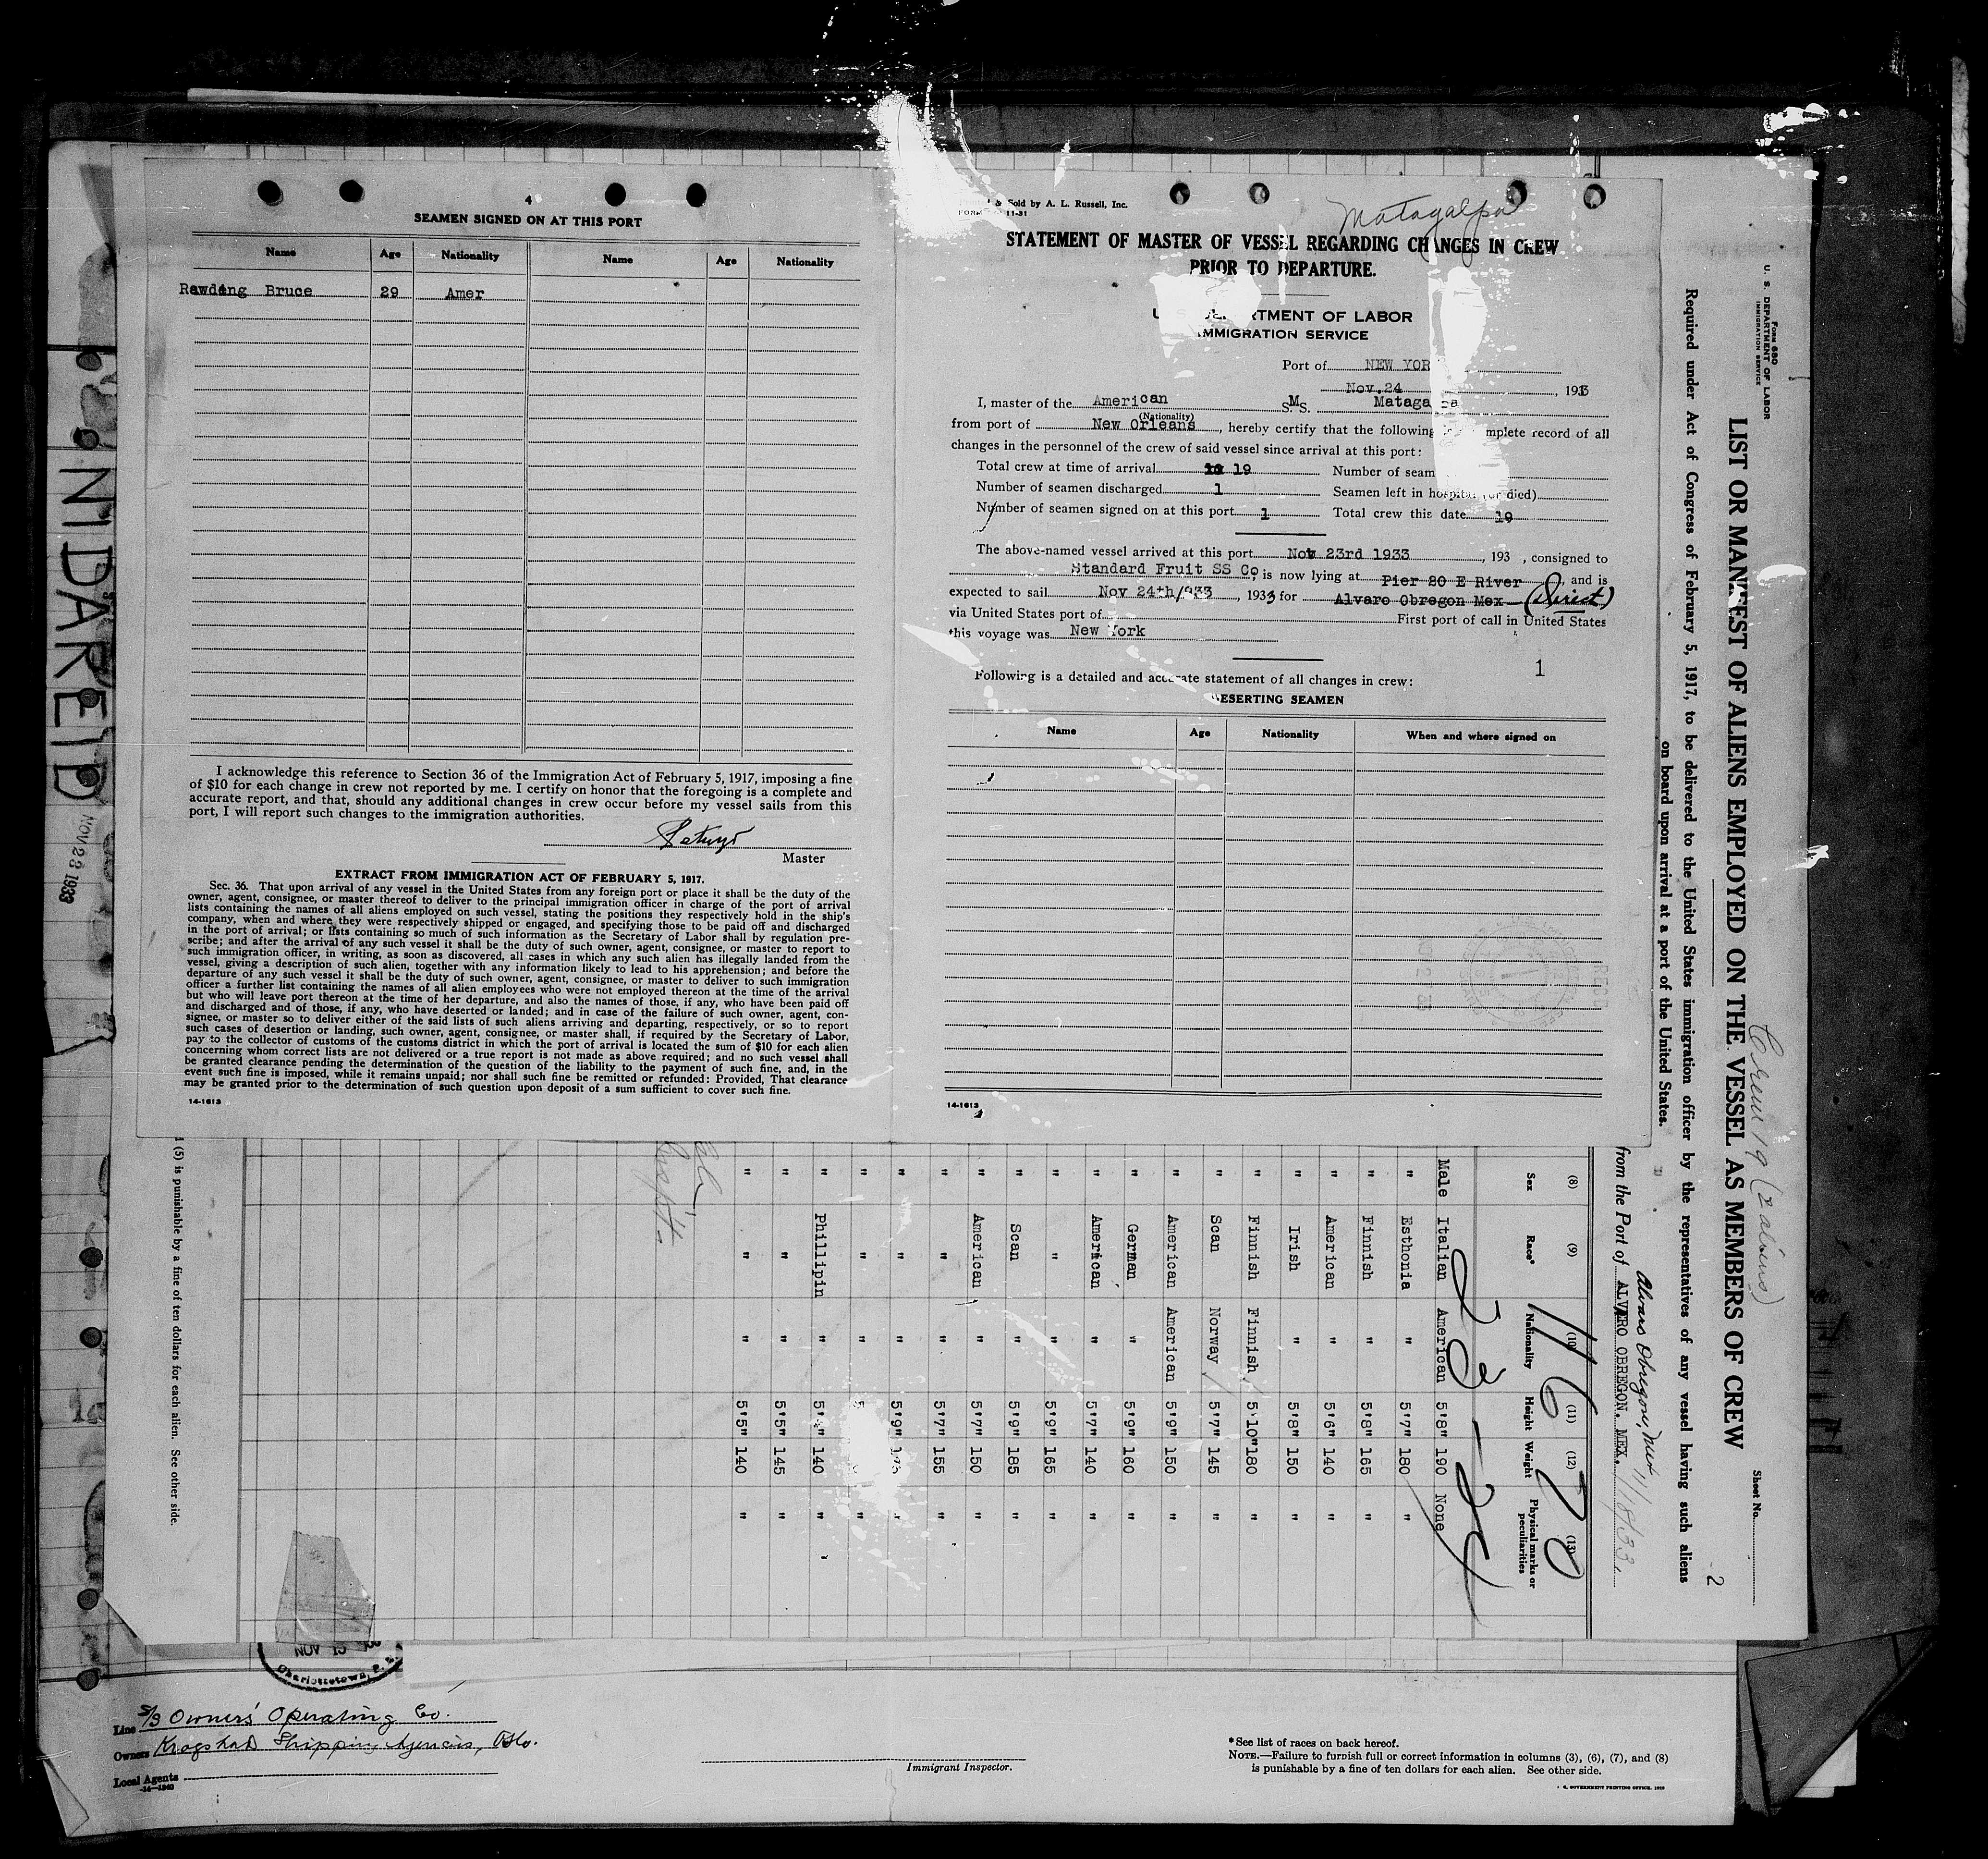 4
SEAMEN SIGNED ON AT THIS PORT
Name Age Nationality Name Age Nationality
Bruce 29 Amer
I acknowledge this reference to Section 36 of the Immigration Act of February 5, 1917, imposing a fine
of $10 for each change in crew not reported by me. I certify on honor that the foregoing is a complete and
accurate report, and that, should any additional changes in crew occur before my vessel sails from this
port, I will report such changes to the immigration authorities.
Master
EXTRACT FROM IMMIGRATION ACT OF FEBRUARY 5, 1917.
Sec. 36. That upon arrival of any vessel in the United States from any foreign port or place it shall be the duty of the
owner, agent, consignee, or master thereof to deliver to the principal immigration officer in charge of the port of arrival
lists containing the names of all aliens employed on such vessel, stating the positions they respectively hold in the ship's
company, when and where they were respectively shipped or engaged, and specifying those to be paid off and discharged
in the port of arrival; or lists containing so much of such information as the Secretary of Labor shall by regulation pre-
scribe; and after the arrival of any such vessel it shall be the duty of such owner, agent, consignee, or master to report to
such immigration officer, in writing, as soon as discovered, all cases in which any such alien has illegally landed from the
vessel, giving a description of such alien, together with any information likely to lead to his apprehension; and before the
departure of any such vessel it shall be the duty of such owner, agent, consignee, or master to deliver to such immigration
officer a further list containing the names of all alien employees who were not employed thereon at the time of the arrival
but who will leave port thereon at the time of her departure, and also the names of those, if any, who have been paid off
and discharged and of those, if any, who have deserted or landed; and in case of the failure of such owner, agent, con-
signee, or master so to deliver either of the said lists of such aliens arriving and departing, respectively, or so to report
such cases of desertion or landing, such owner, agent, consignee, or master shall, if required by the Secretary of Labor,
pay to the collector of customs of the customs district in which the port of arrival is located the sum of $10 for each alien
concerning whom correct lists are not delivered or a true report is not made as above required; and no such vessel shall
be granted clearance pending the determination of the question of the liability to the payment of such fine, and, in the
event such fine is imposed, while it remains unpaid; nor shall such fine be remitted or refunded: Provided, That clearance
may be granted prior to the determination of such question upon deposit of a sum sufficient to cover such fine.
14-1613
& Sold by A. L. Russell, Inc.
FORM 11-31
Matagalpa
STATEMENT OF MASTER OF VESSEL REGARDING CHANGES IN CREW
PRIOR TO DEPARTURE.
U. S. DEPARTMENT OF LABOR
IMMIGRATION SERVICE
Port of NEW YOR
Nov.24, 1933
I, master of the American S.M.S. Matagalpa
(Nationality)
from port of New Orleans, hereby certify that the following complete record of all
changes in the personnel of the crew of said vessel since arrival at this port:
Total crew at time of arrival 19 Number of seam
Number of seamen discharged 1 Seamen left in hospital (or died)
Number of seamen signed on at this port 1 Total crew this date 19
The above-named vessel arrived at this port Nov 23rd 1933, 193 , consigned to
Standard Fruit SS Co, is now lying at Pier 20 E River, and is
expected to sail Nov 24th/933, 1933 for Alvaro Obregon Mex (Direct)
via United States port of First port of call in United States
this voyage was New York
1
Following is a detailed and accurate statement of all changes in crew:
DESERTING SEAMEN
Name Age Nationality When and where signed on
14-1613
Form 680
U. S. DEPARTMENT OF LABOR
IMMIGRATION SERVICE
Crew 19 (2 aliens)
Sheet No.
2
LIST OR MANIFEST OF ALIENS EMPLOYED ON THE VESSEL AS MEMBERS OF CREW
Required under Act of Congress of February 5, 1917, to be delivered to the United States immigration officer by the representatives of any vessel having such aliens
on board upon arrival at a port of the United States.
Alvaro Obregon, Mex 11/18/33
from the Port of ALVARO OBREGON. MEX.
(8) (9) (10) (11) (12) (13)
Sex Race* Nationality Height Weight Physical marks or peculiarities
Male Italian American 5'8" 190 None
" Esthonia " 5'7" 180 "
" Finnish " 5'8" 165 "
" American " 5'6" 140 "
" Irish " 5'8" 150 "
" Finnish Finnish 5'10" 180 "
" Scan Norway 5'7" 145 "
" American American 5'9" 150 "
" German " 5'9" 160 "
" American " 5'7" 140 "
" " " 5'9" 165 "
" Scan " 5'9" 185 "
" American " 5'7" 150 "
" " " 5'7" 155 "
" " " 5'9" "
" " " "
" Phillipin " 140 "
" " " 5'5" 145 "
" " " 5'5" 140 "
(5) is punishable by a fine of ten dollars for each alien. See other side.
NIDAREID
NOV 23 1933
NOV 15
Charlottetown, P.
Line S/S Owners' Operating Co.
Owners Shipping Agencies, Oslo.
Local Agents
Immigrant Inspector.
* See list of races on back hereof.
NOTE.—Failure to furnish full or correct information in columns (3), (6), (7), and (8)
is punishable by a fine of ten dollars for each alien. See other side.
GOVERNMENT PRINTING OFFICE